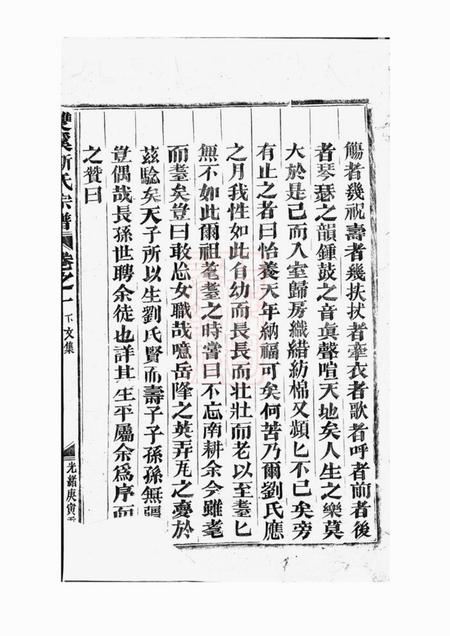 觴者幾祝壽者幾扶杖者牽衣者歌者呼者前者後
者琴瑟之韻鍾鼓之音眞聲喧天地矣人生之樂莫
大於是已而入室歸房織績紡棉又頻匕不已矣旁
有止之者曰怡養天年納福可矣何苦乃爾劉氏應
之月我性如此自幼而長長而壯壯而老以至耋匕
無不如此爾祖耄耋之時嘗曰不忘南耕余今雖耄
而耋矣豈曰敢忘女職哉噫岳降之英弄瓦之慶於
茲騐矣天子所以生劉氏賢而壽子子孫孫無疆
豈偶哉長孫世聘余徒也詳其生平屬余爲序而
之贊曰
雙溪 氏宗譜
卷之一
下文集
光緒庚寅重